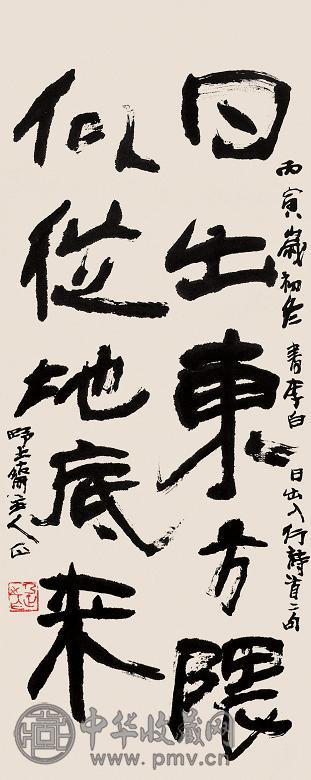 丙寅歲初冬 書李白 日出入行詩首二句
日出東方隈
似從地底来
主人
中华收藏网
www.pmv.cn